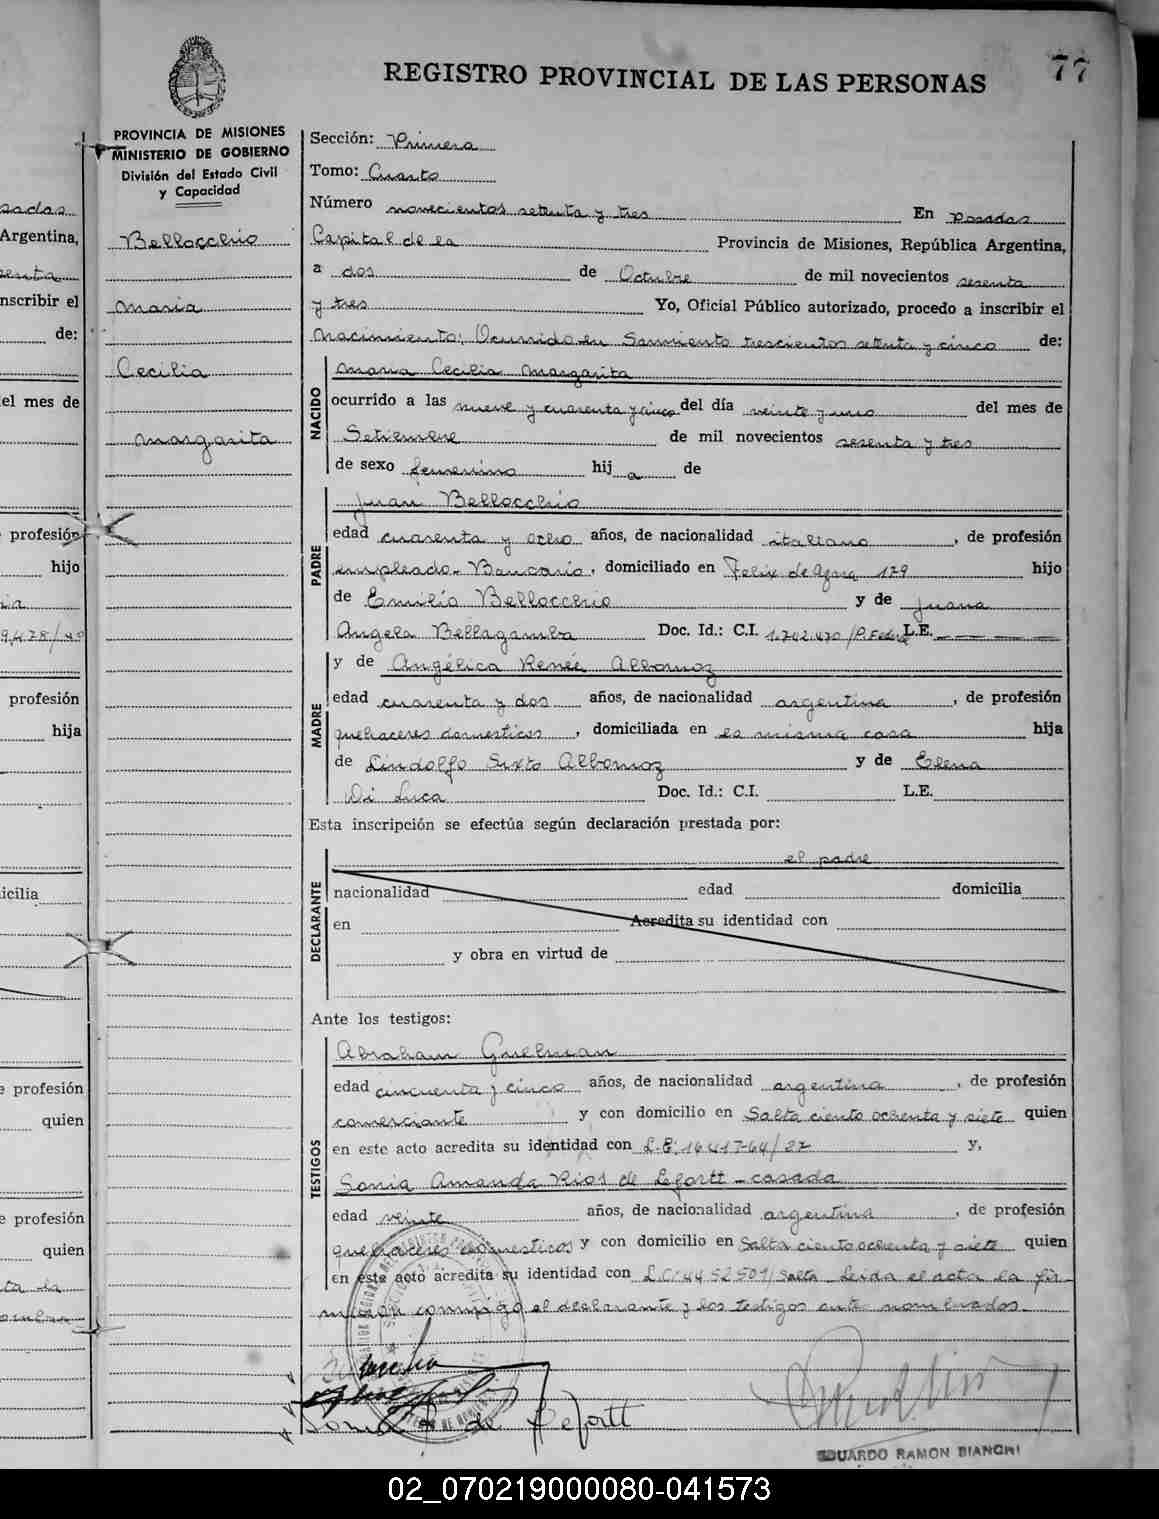 77
REGISTRO PROVINCIAL DE LAS PERSONAS
PROVINCIA DE MISIONES
MINISTERIO DE GOBIERNO
División del Estado Civil
y Capacidad
Bellocchio
Maria
Cecilia
Margarita
Sección: Primera
Tomo: Cuarto
Número novecientos setenta y tres En Posadas
Capital de la Provincia de Misiones, República Argentina,
a dos de Octubre de mil novecientos sesenta
y tres Yo, Oficial Público autorizado, procedo a inscribir el
Nacimiento; Ocurrido en Sarmiento trescientos setenta y cinco de:
NACIDO
Maria Cecilia Margarita
ocurrido a las nueve y cuarenta y cinco del día veinte y uno del mes de
Setiembre de mil novecientos sesenta y tres
de sexo femenino hij a de
PADRE
Juan Bellocchio
edad cuarenta y ocho años, de nacionalidad italiano, de profesión
empleado-Bancario, domiciliado en Felix de Azara 179 hijo
de Emilio Bellocchio y de Juana
Angela Bellagamba Doc. Id.: C.I. 1.742.470/P.Federal L.E.
MADRE
y de Angélica Renée Albornoz
edad cuarenta y dos años, de nacionalidad argentina, de profesión
quehaceres domesticos, domiciliada en la misma casa hija
de Lindolfo Sixto Albornoz y de Elena
Di Luca Doc. Id.: C.I. L.E.
Esta inscripción se efectúa según declaración prestada por:
DECLARANTE
el padre
nacionalidad edad domicilia
en Acredita su identidad con
y obra en virtud de
Ante los testigos:
TESTIGOS
Abraham Guelman
edad cincuenta y cinco años, de nacionalidad argentina, de profesión
comerciante y con domicilio en Salta ciento ochenta y siete quien
en este acto acredita su identidad con L.E: 1641764/27 y,
Sonia Amanda Rios de Lefortt - casada
edad veinte años, de nacionalidad argentina, de profesión
quehaceres domesticos y con domicilio en Salta ciento ochenta y siete quien
en este acto acredita su identidad con L.C: 4452501/Salta. Leida el acta la fir-
maron conmigo el declarante y los testigos ante nombrados.
Sonia R de Lefortt
EDUARDO RAMON BIANCHI
Argentina,
inscribir el
de:
el mes de
profesión
hijo
profesión
hija
profesión
quien
profesión
quien
02_070219000080-041573